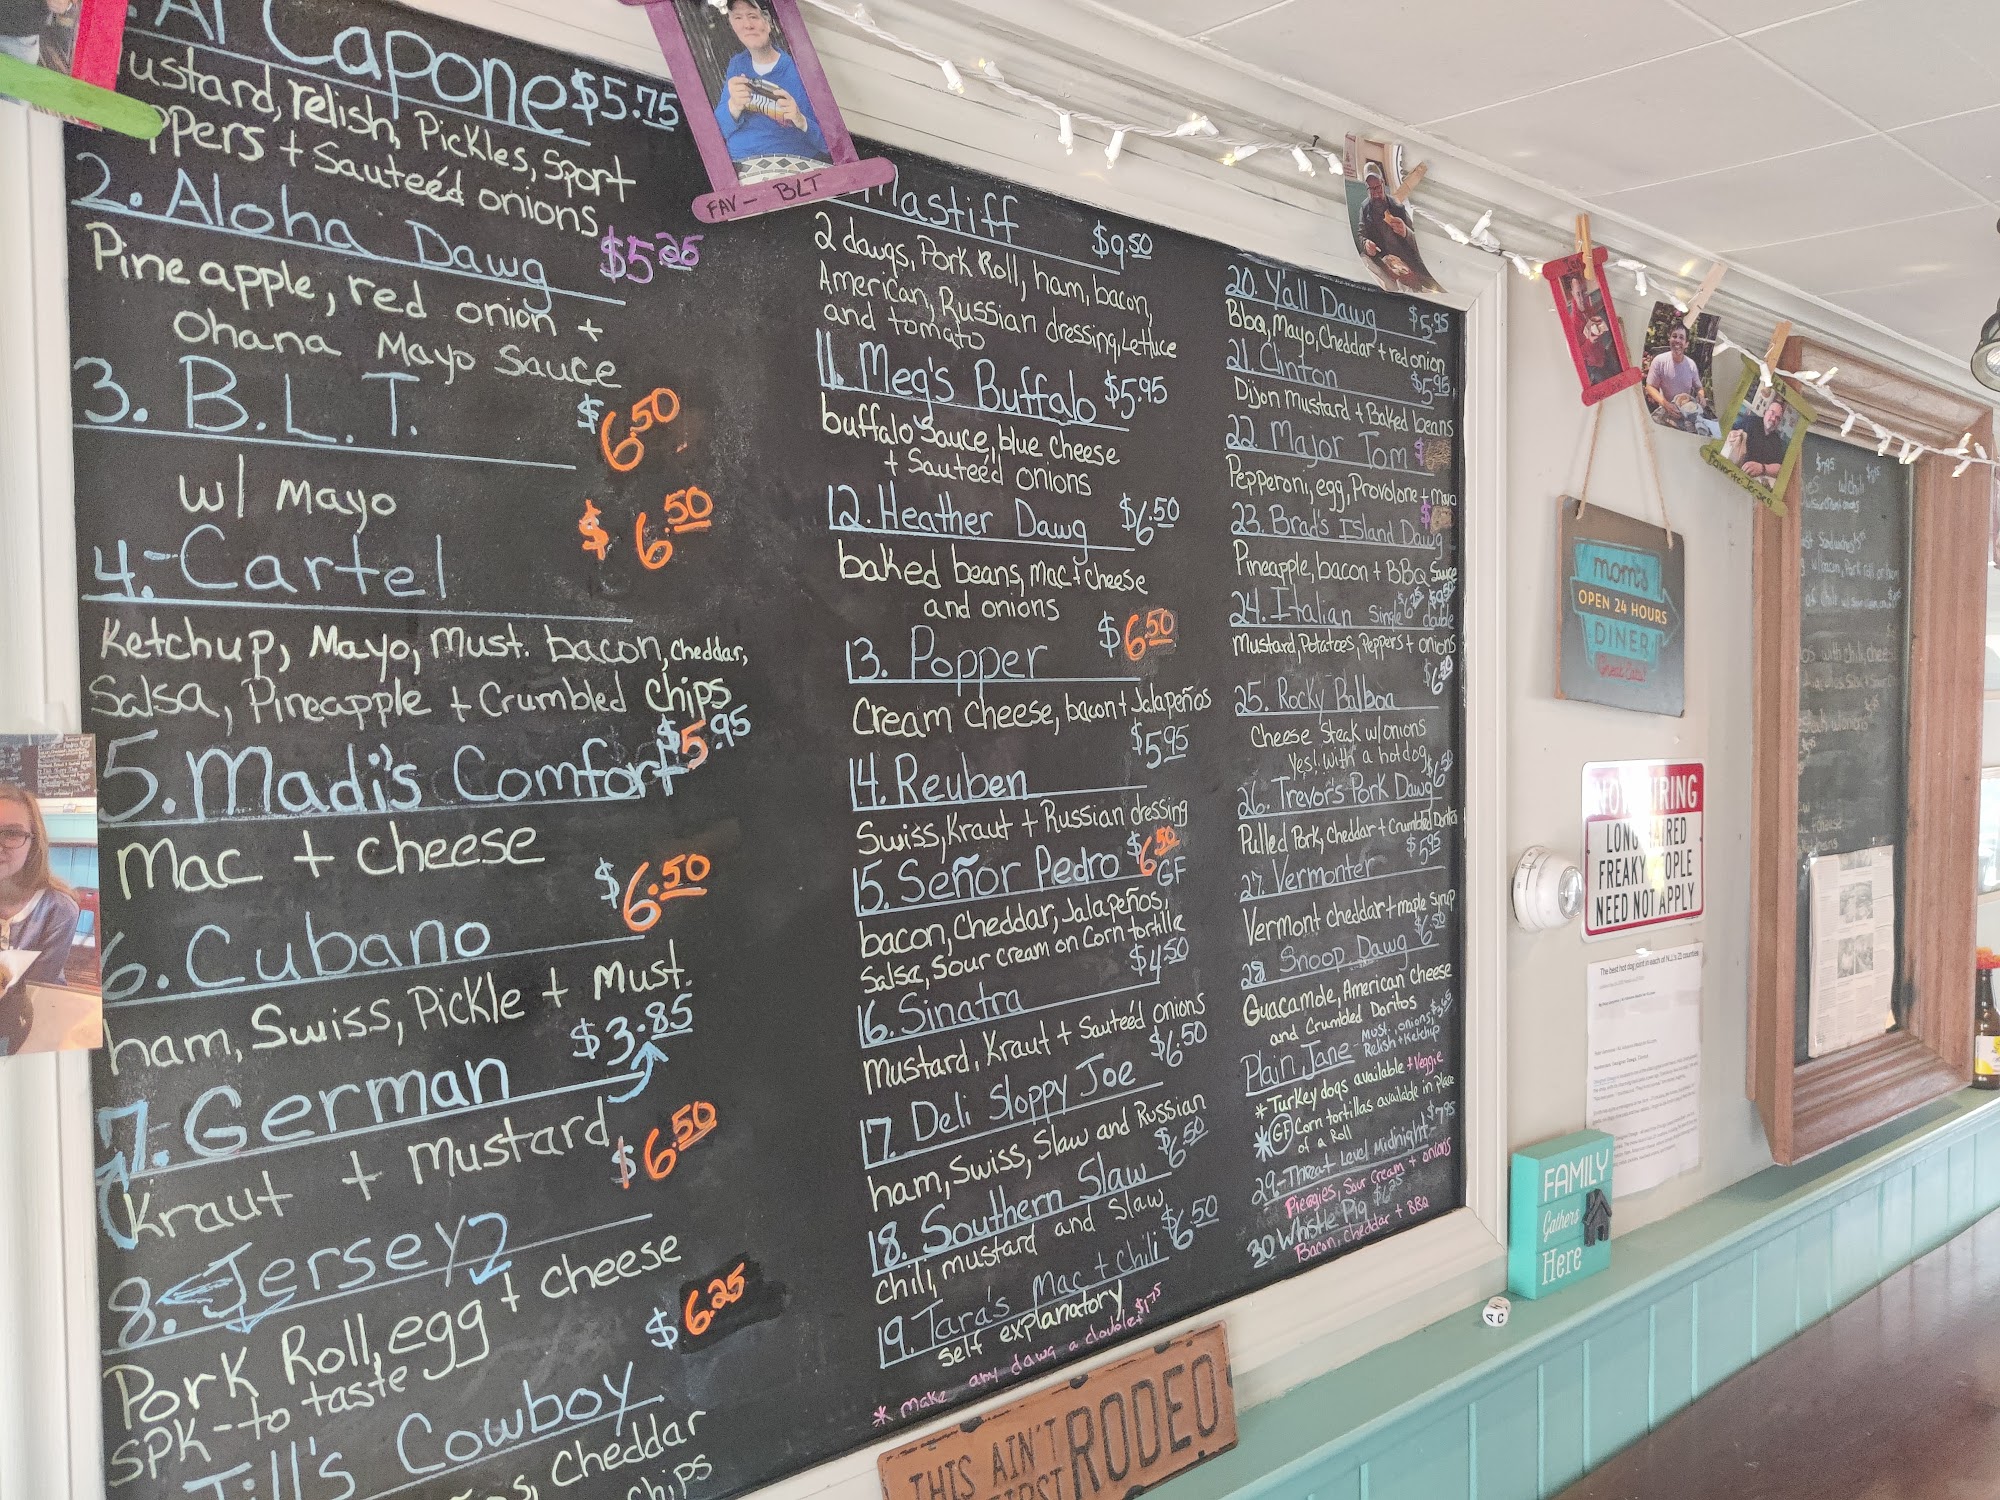 Al Capone $5.75
ustard, relish, Pickles, Sport
ppers + Sauteéd onions
2. Aloha Dawg $5.25
Pineapple, red onion +
Ohana Mayo Sauce
3. B.L.T. $6.50
w/ Mayo
4. Cartel $6.50
Ketchup, Mayo, Must. bacon, cheddar,
Salsa, Pineapple + Crumbled Chips
5. Madi's Comfort $5.95
Mac + cheese
6. Cubano $6.50
ham, Swiss, Pickle + Must.
7. German $3.85
Kraut + Mustard
8. Jersey 2 $6.50
Pork Roll, egg + cheese
SPK-to taste
Jill's Cowboy $6.25
s, Cheddar
Chips
FAV- BLT
Mastiff $9.50
2 dawgs, Pork Roll, ham, bacon,
American, Russian dressing, Lettuce
and tomato
11. Meg's Buffalo $5.95
buffalo Sauce, blue cheese
+ Sauteéd onions
12. Heather Dawg $6.50
baked beans, Mac + cheese
and onions
13. Popper $6.50
Cream cheese, bacon + Jalapeños
14. Reuben $5.95
Swiss, Kraut + Russian dressing
15. Señor Pedro $6.50 GF
bacon, Cheddar, Jalapeños,
Salsa, Sour cream on Corn tortilla
16. Sinatra $4.50
Mustard, Kraut + Sauteéd onions
17. Deli Sloppy Joe $6.50
ham, Swiss, Slaw and Russian
18. Southern Slaw $6.50
Chili, mustard and Slaw
19. Tara's Mac + Chili $6.50
self explanatory
* make any dawg a double + $1.75
20. Y'all Dawg $5.95
Bbq, Mayo, Cheddar + red onion
21. Clinton $5.95
Dijon Mustard + Baked beans
22. Major Tom $
Pepperoni, egg, Provolone + Mayo
23. Brad's Island Dawg $
Pineapple, bacon + BBQ Sauce
24. Italian Single double
Mustard, Potatoes, Peppers + onions
25. Rocky Balboa $6.50
Cheese Steak w/onions
Yes! with a hotdog
26. Trevor's Pork Dawg $6.50
Pulled Pork, Cheddar + Crumbled Doritos
27. Vermonter $5.95
Vermont cheddar + maple syrup
28 Snoop Dawg $6.50
Guacamole, American cheese
and Crumbled Doritos
Plain Jane- Must., onions, $3.65
Relish + Ketchup
* Turkey dogs available + Veggie
* GF Corn tortillas available in place
of a Roll
29-Threat Level Midnight- $7.95
Pierogies, Sour Cream + onions
30 Whistle Pig $6.25
Bacon, cheddar + BBQ
Favorite: Jersey
mom's
OPEN 24 HOURS
DINER
Great Eats!
NOW HIRING
LONG HAIRED
FREAKY PEOPLE
NEED NOT APPLY
The best hot dog joint in each of N.J.'s 21 counties
FAMILY
Gathers
Here
THIS AIN'T
FIRST
RODEO